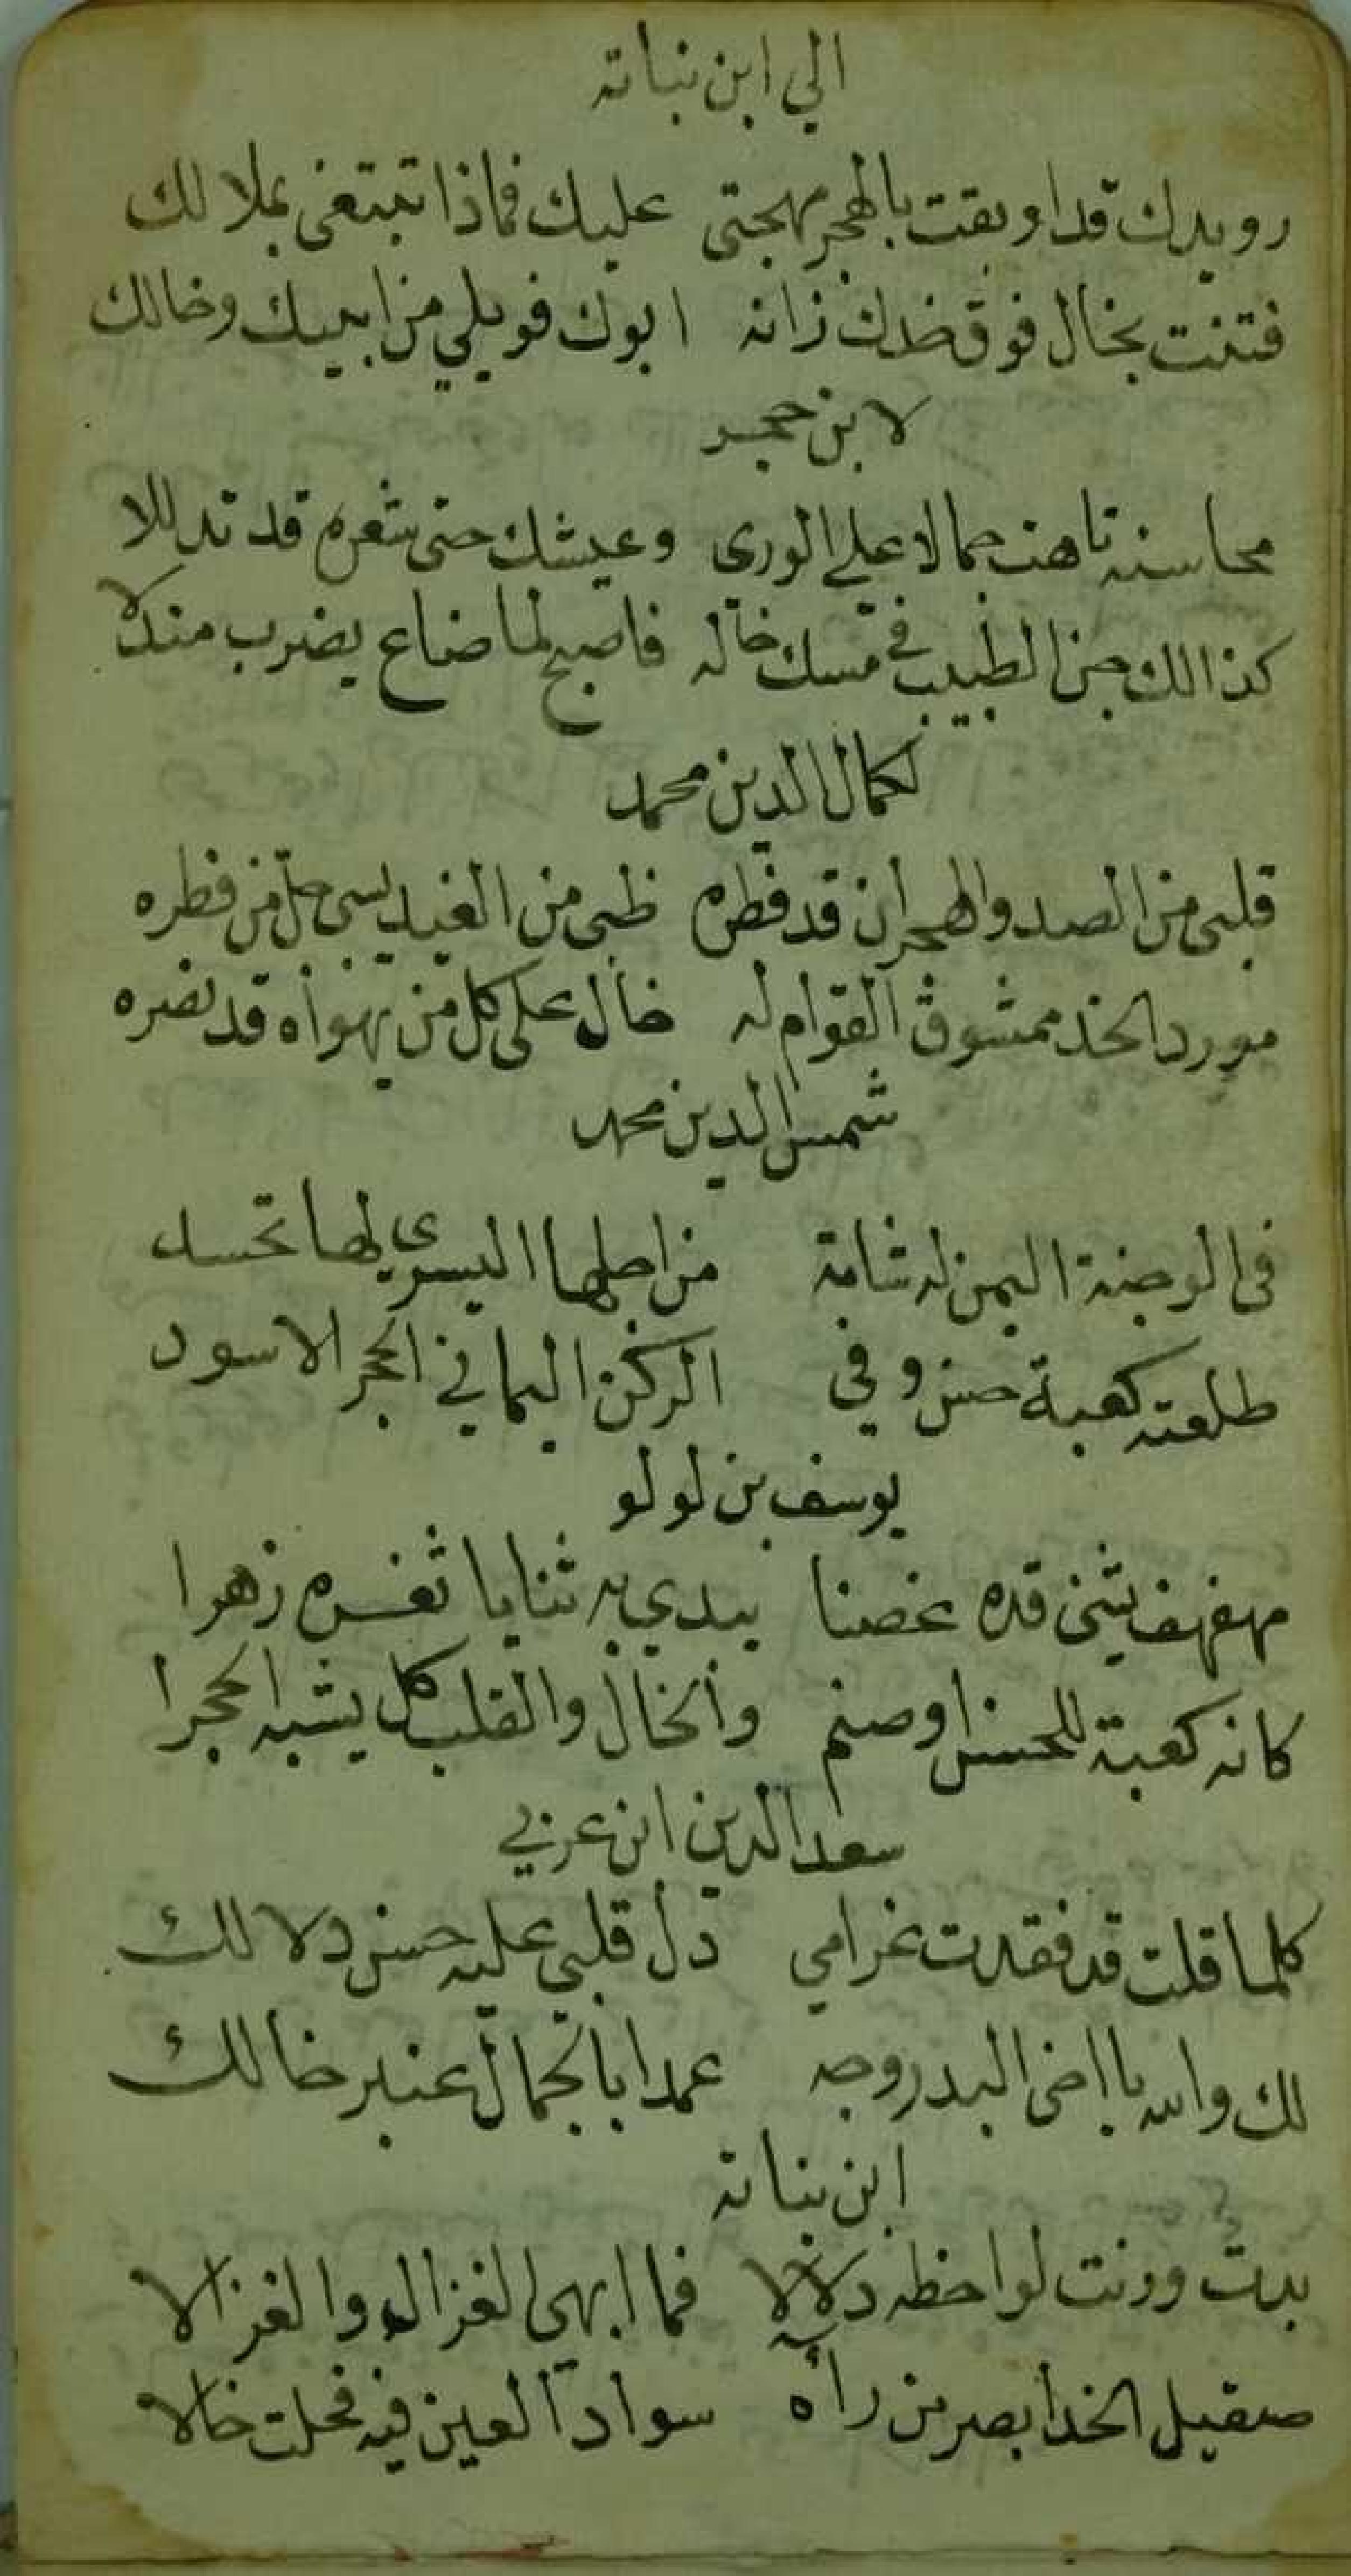 الي ابن نباته
رويدك قد اوبقت بالهجر مهجتي عليك فماذا تبتغي بملالك
فتنت بخال فوق خدك زانه ابوك فويلي من ابيك وخالك
لابن حجر
محاسنه تاهت جمالا علي الوري وعيشك حتى شعره قد تدللا
كذالك جن الطيب في مسك خاله فاصبح لما ضاع يضرب مندلا
لكمال الدين محمد
قلبي من الصد والهجران قد فطره ظبي من الغيد يسبي جل من فطره
مورد الخد ممشوق القوام له خال على كل من يهواه قد نصره
شمس الدين محمد
في الوجنة اليمن له شامة من اجلها اليسرى لها تحسد
طلعته كعبة حسن وفي الركن اليماني الحجر الاسود
يوسف بن لولو
مهفهف يثني قده غصنا يبدي به ثنايا ثغره زهرا
كانه كعبة للحسن او صنم والخال والقلب كل يشبه الحجرا
سعد الدين ابن عربي
كلما قلت قد فقدت غرامي دل قلبي عليه حسن دلالك
لك والله يا اخي البدر وجه عمدا بالجمال عنبر خالك
ابن نباته
بدت ورنت لواحظه دلالا فما ابهى الغزاله والغزالا
صقيل الخد ابصر من رأه سواد العين فيه فخلت خالا